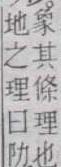 象其條理也
地之理曰阞